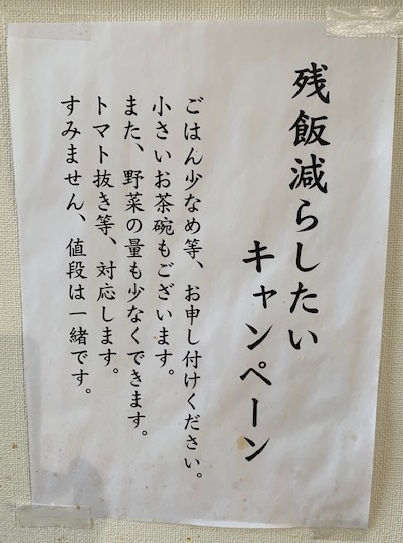 残飯減らしたい
キャンペーン
ごはん少なめ等、お申し付けください。
小さいお茶碗もございます。
また、野菜の量も少なくできます。
トマト抜き等、対応します。
すみません、値段は一緒です。